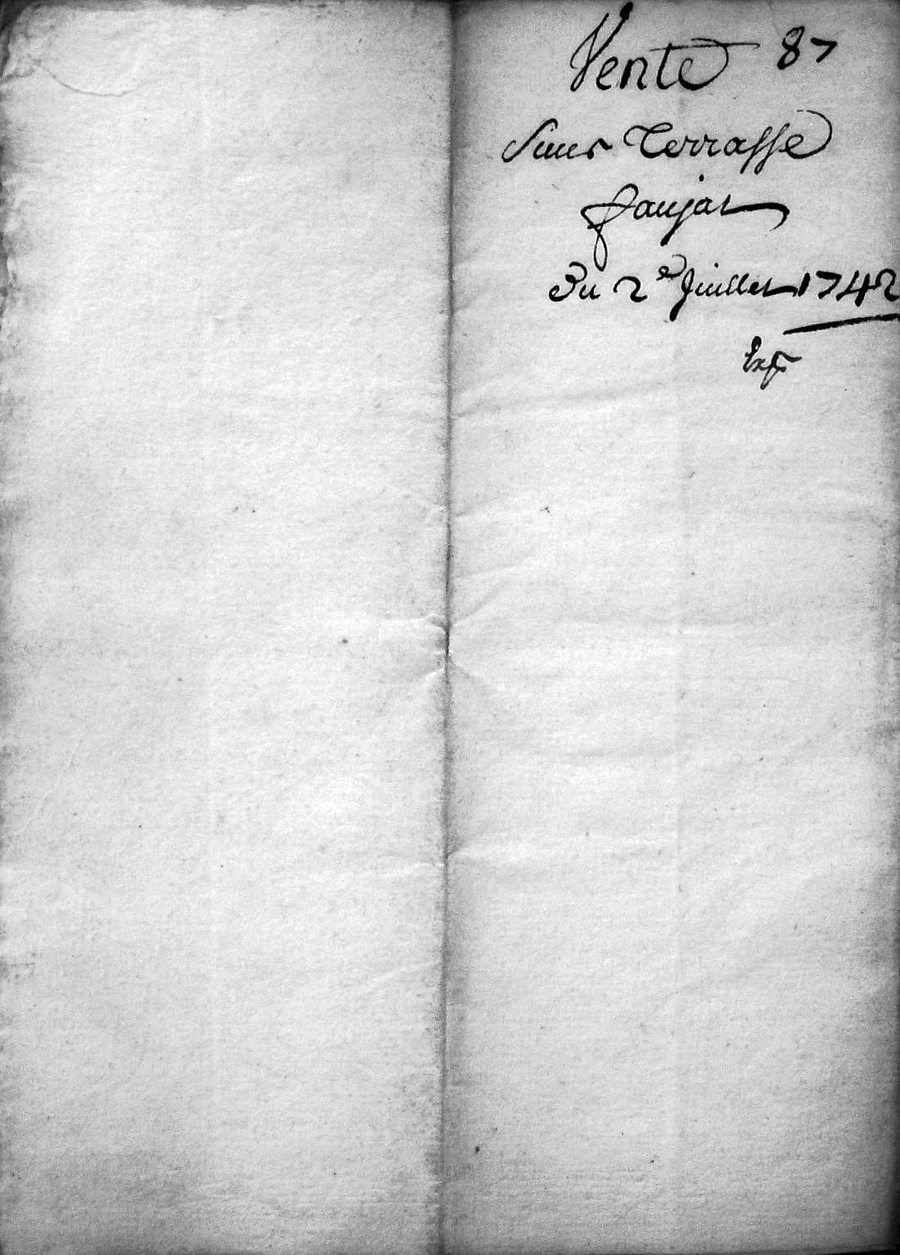 Vente 87
Sieur Terrasse
faujat
Du 2e Juillet 1742